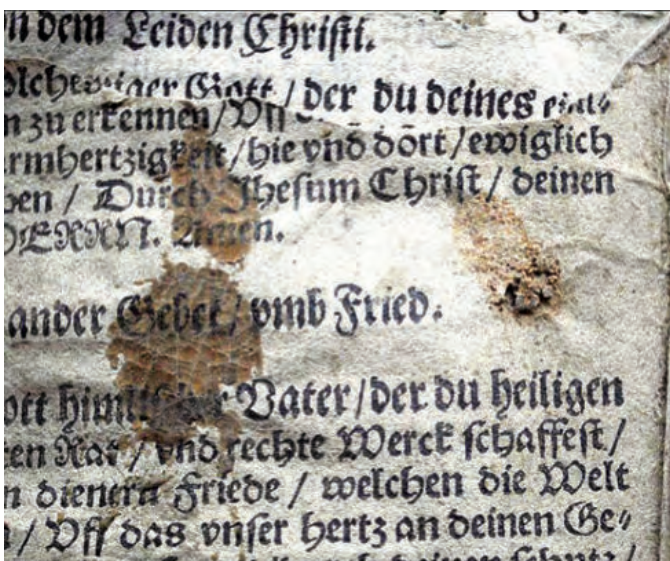 n dem Leiden Chriſti.
Gott / der du deines
n zu erkennen / Vff
rmhertzigkeit / hie vnd dort / ewiglich
ben / Durch Jheſum Chriſt / deinen
HERRN. Amen.
ander Gebet / vmb Fried.
ott himliſcher Vater / der du heiligen
en Rat / vnd rechte Werck ſchaffeſt /
n dienern Friede / welchen die Welt
/ Vff das vnſer hertz an deinen Ge⸗